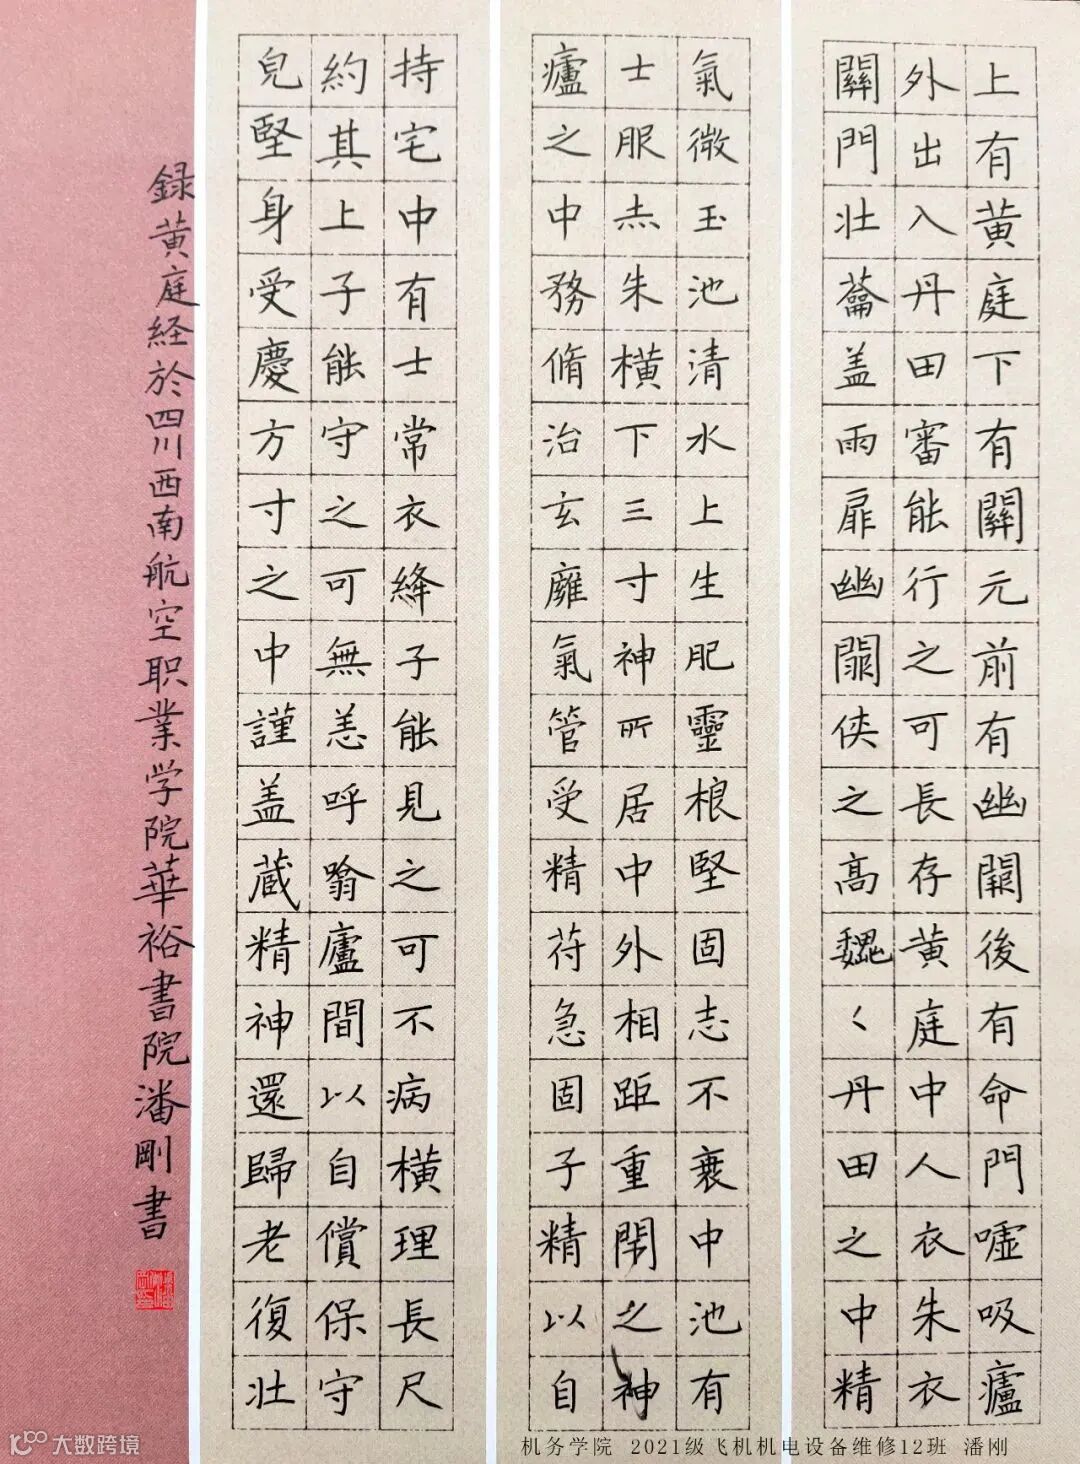 上有黄庭下有關元前有幽闕後有命門嘘吸廬
外出入丹田審能行之可長存黄庭中人衣朱衣
關門壮蘥盖兩扉幽闕侠之高魏く丹田之中精
氣微玉池清水上生肥靈根堅固志不衰中池有
士服赤朱横下三寸神所居中外相距重閉之神
廬之中務脩治玄廱氣管受精苻急固子精以自
持宅中有士常衣絳子能見之可不病横理長尺
約其上子能守之可無恙呼噏廬間以自償保守
兒堅身受慶方寸之中謹盖蔵精神還歸老復壮
録黄庭経於四川西南航空职業学院華裕書院潘剛書
机务学院 2021级飞机机电设备维修12班 潘刚
大数跨境